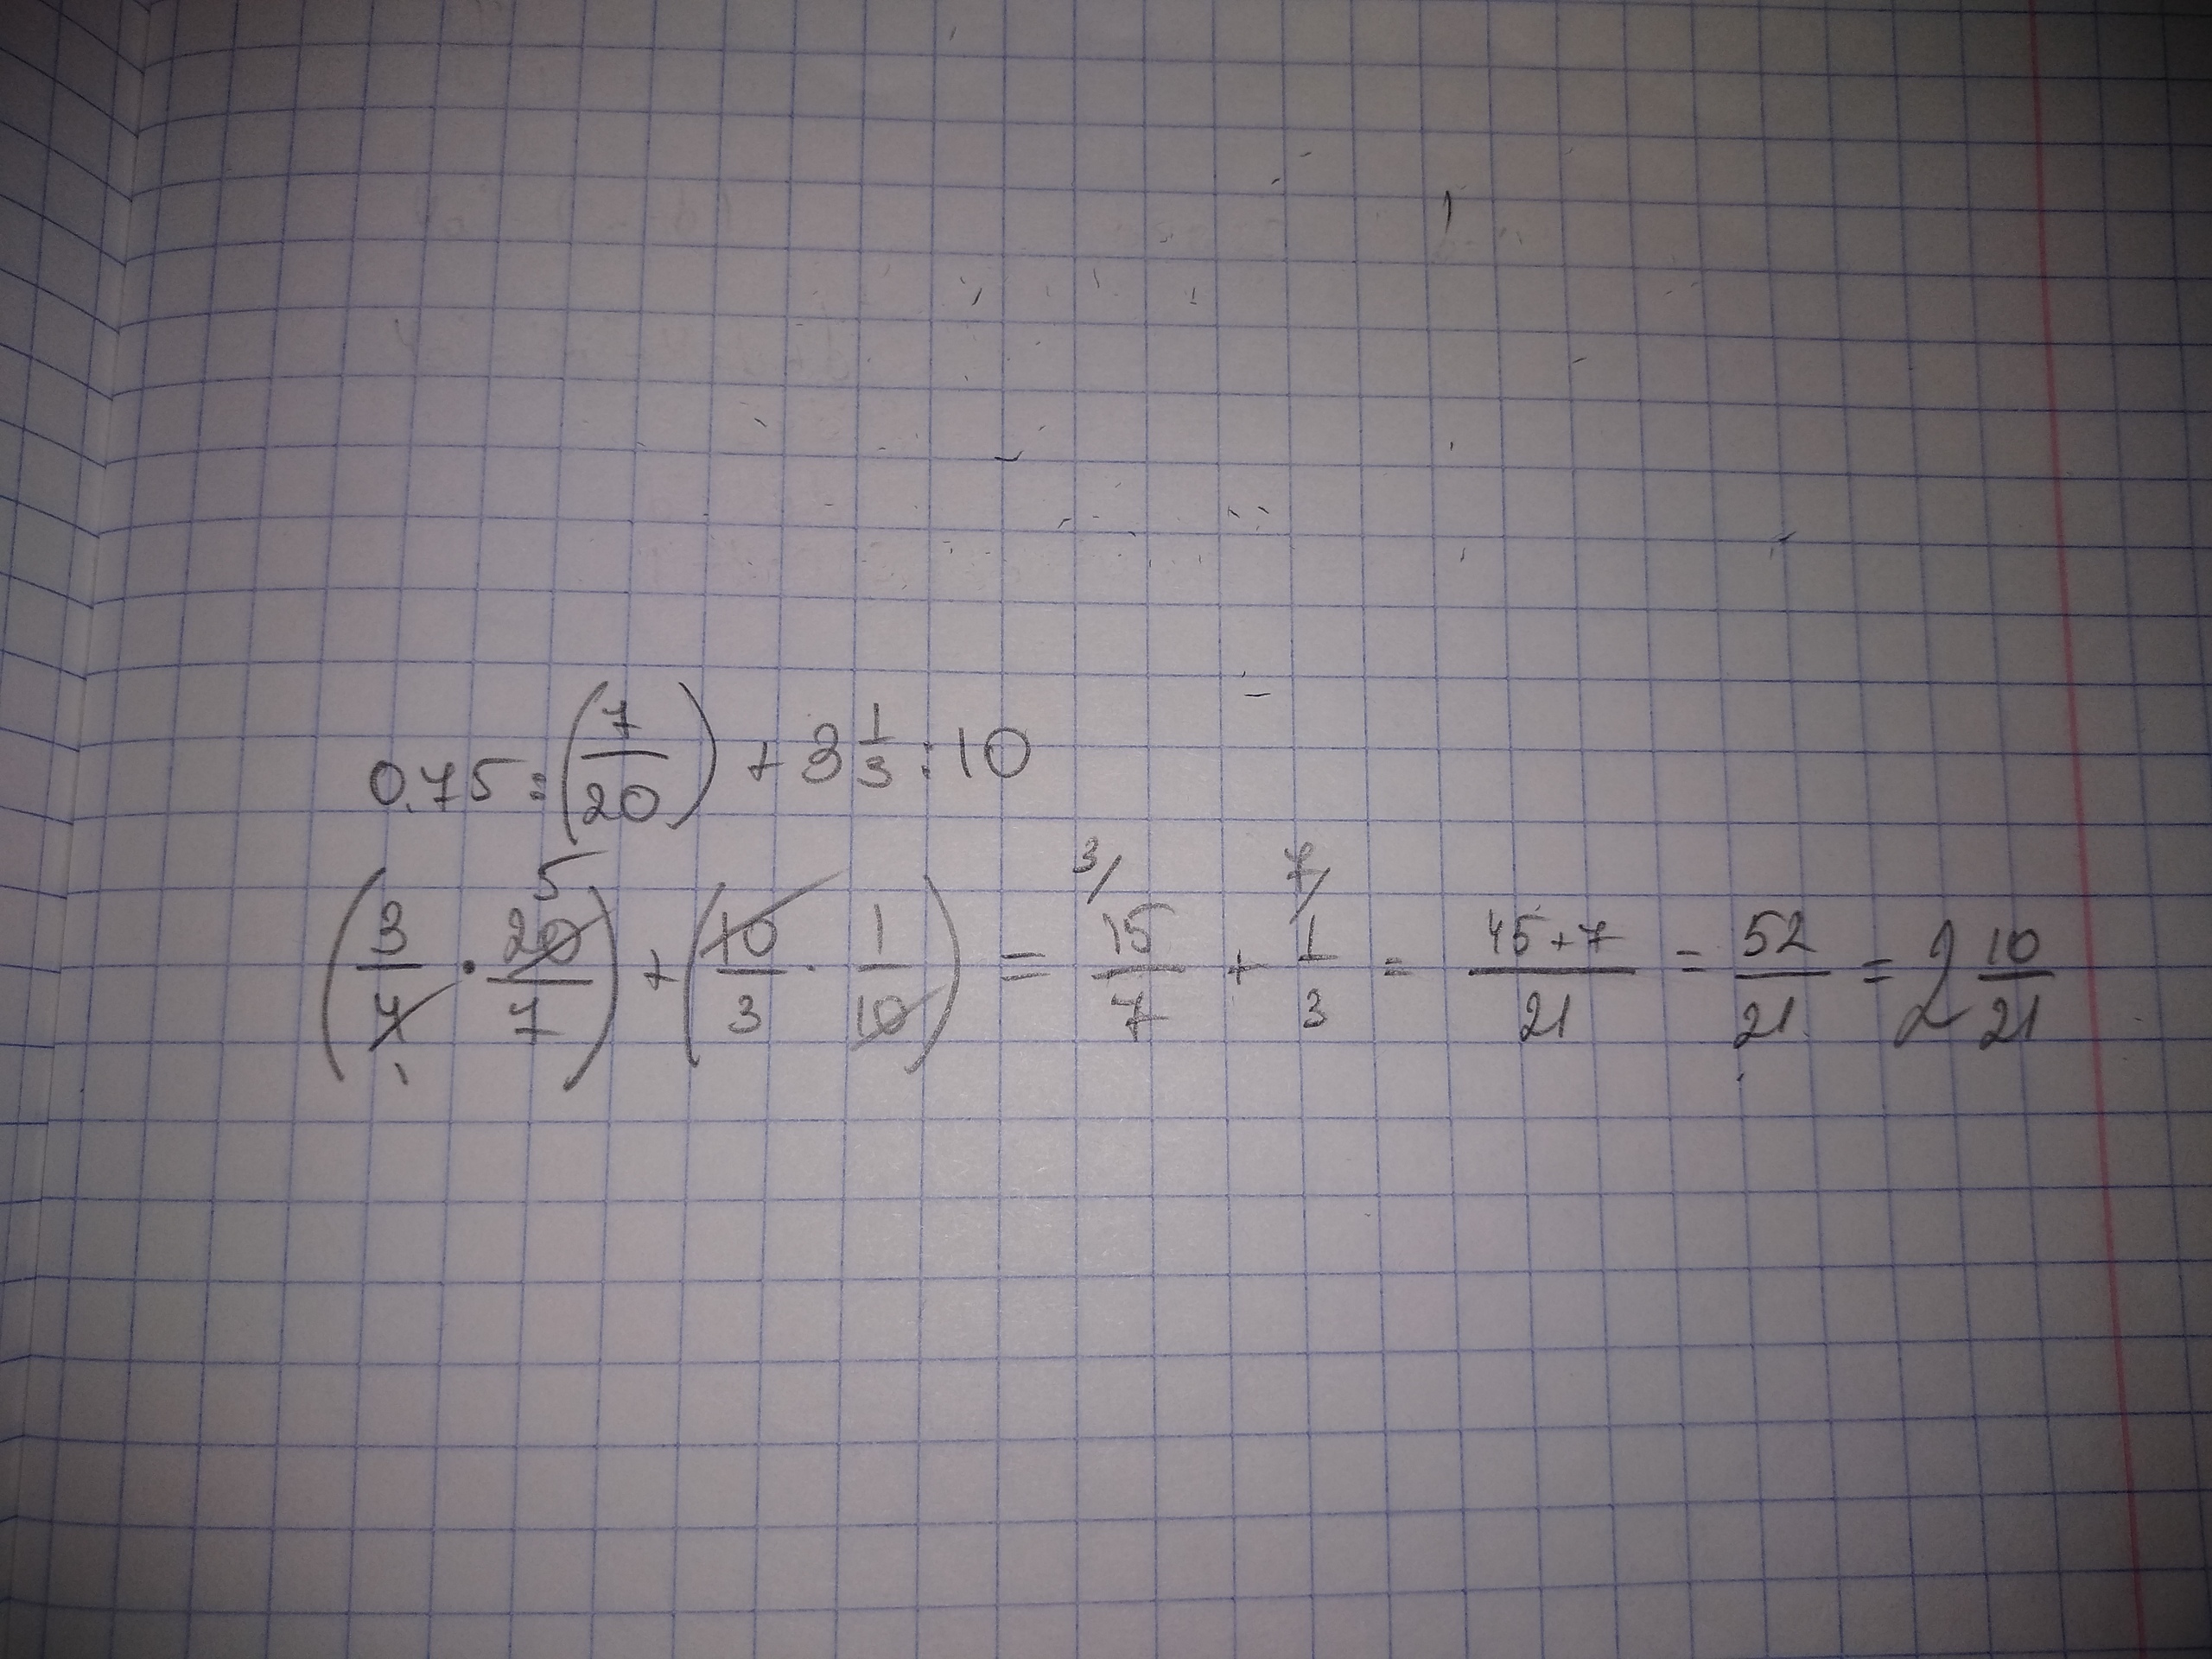 0,75:(7/20)+3 1/3:10
(3/4·20/7)+(10/3·1/10)=15/7+1/3=45+7/21=52/21=2 10/21